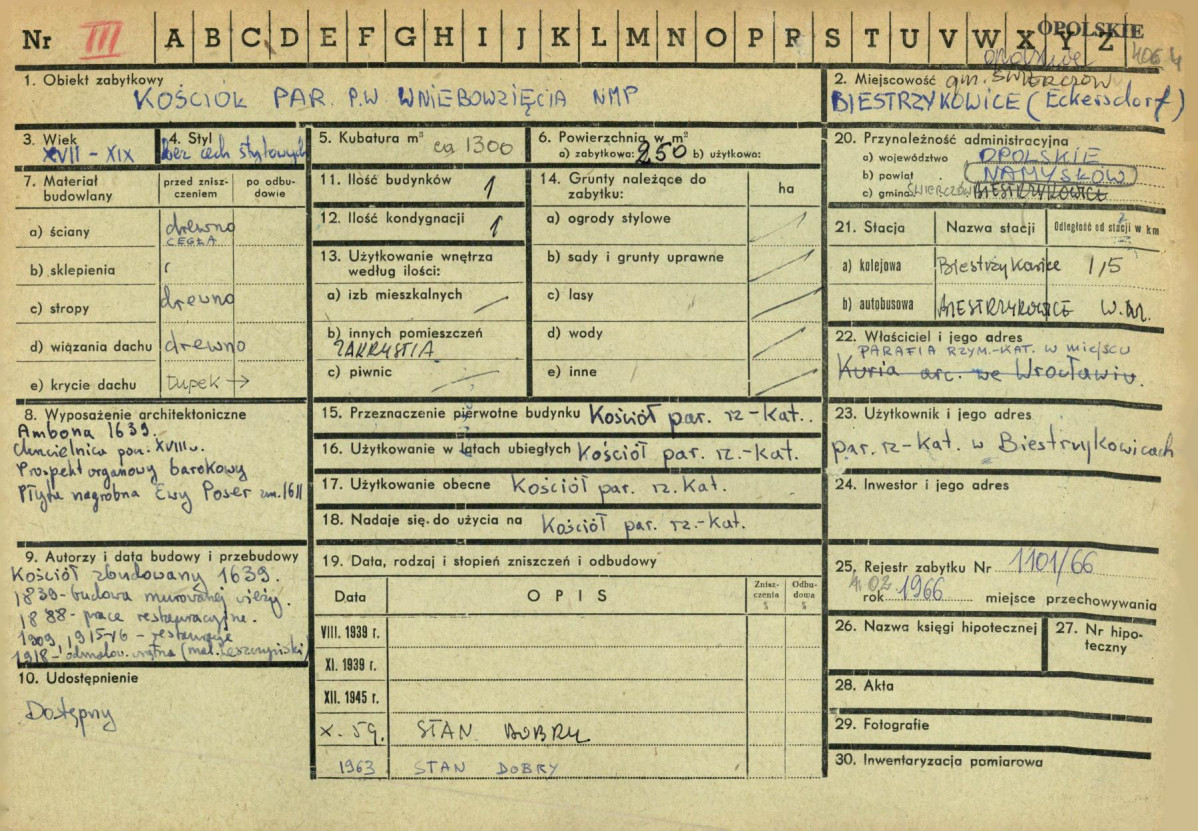 Nr III A B C D E F G H I J K L M N O P R S T U V W X Y Z
OPOLSKIE
1. Obiekt zabytkowy
KOŚCIOŁ PAR. P.W WNIEBOWZIĘCIA NMP
2. Miejscowość gm. ŚWIERCZÓW
BIESTRZYKOWICE (Eckersdorf)
3. Wiek
XVII - XIX
4. Styl
bez cech stylowych
5. Kubatura m³ ca 1300
6. Powierzchnia w m²
a) zabytkowa: 250 b) użytkowa:
7. Materiał budowlany
przed zniszczeniem
po odbudowie
a) ściany drewno
CEGŁA
b) sklepienia
c) stropy drewno
d) wiązania dachu drewno
e) krycie dachu łupek →
8. Wyposażenie architektoniczne
Ambona 1639.
Chrzcielnica poł. XVIII w.
Prospekt organowy barokowy
Płyta nagrobna Ewy Poser zm. 1611
9. Autorzy i data budowy i przebudowy
Kościół zbudowany 1639.
1839 - budowa murowanej wieży.
1888 - prace restauracyjne.
1909, 1915-16 - restauracje
1918 - odmalow. wnętrza (mal. Leszczyński)
10. Udostępnienie
Dostępny
11. Ilość budynków 1
12. Ilość kondygnacji 1
13. Użytkowanie wnętrza
według ilości:
a) izb mieszkalnych
b) innych pomieszczeń
ZAKRYSTIA
c) piwnic
14. Grunty należące do
zabytku:
ha
a) ogrody stylowe
b) sady i grunty uprawne
c) lasy
d) wody
e) inne
15. Przeznaczenie pierwotne budynku Kościół par. rz-kat.
16. Użytkowanie w latach ubiegłych Kościół par. rz.-kat.
17. Użytkowanie obecne Kościół par. rz. Kat.
18. Nadaje się do użycia na Kościół par. rz.-kat.
19. Data, rodzaj i stopień zniszczeń i odbudowy
Data
OPIS
Zniszczenia %
Odbudowa %
VIII. 1939 r.
XI. 1939 r.
XII. 1945 r.
X. 59. STAN DOBRY
1963 STAN DOBRY
20. Przynależność administracyjna
a) województwo OPOLSKIE
b) powiat NAMYSŁÓW
c) gmina ŚWIERCZÓW BIESTRZYKOWICE
21. Stacja
Nazwa stacji
Odległość od stacji w km
a) kolejowa Biestrzykowice 1,5
b) autobusowa BIESTRZYKOWICE W. M.
22. Właściciel i jego adres
PARAFIA RZYM.-KAT. W MIEJSCU
Kuria arc. we Wrocławiu.
23. Użytkownik i jego adres
par. rz-kat. w Biestrzykowicach
24. Inwestor i jego adres
25. Rejestr zabytku Nr 1101/66
rok 1966 miejsce przechowywania
26. Nazwa księgi hipotecznej
27. Nr hipoteczny
28. Akta
29. Fotografie
30. Inwentaryzacja pomiarowa